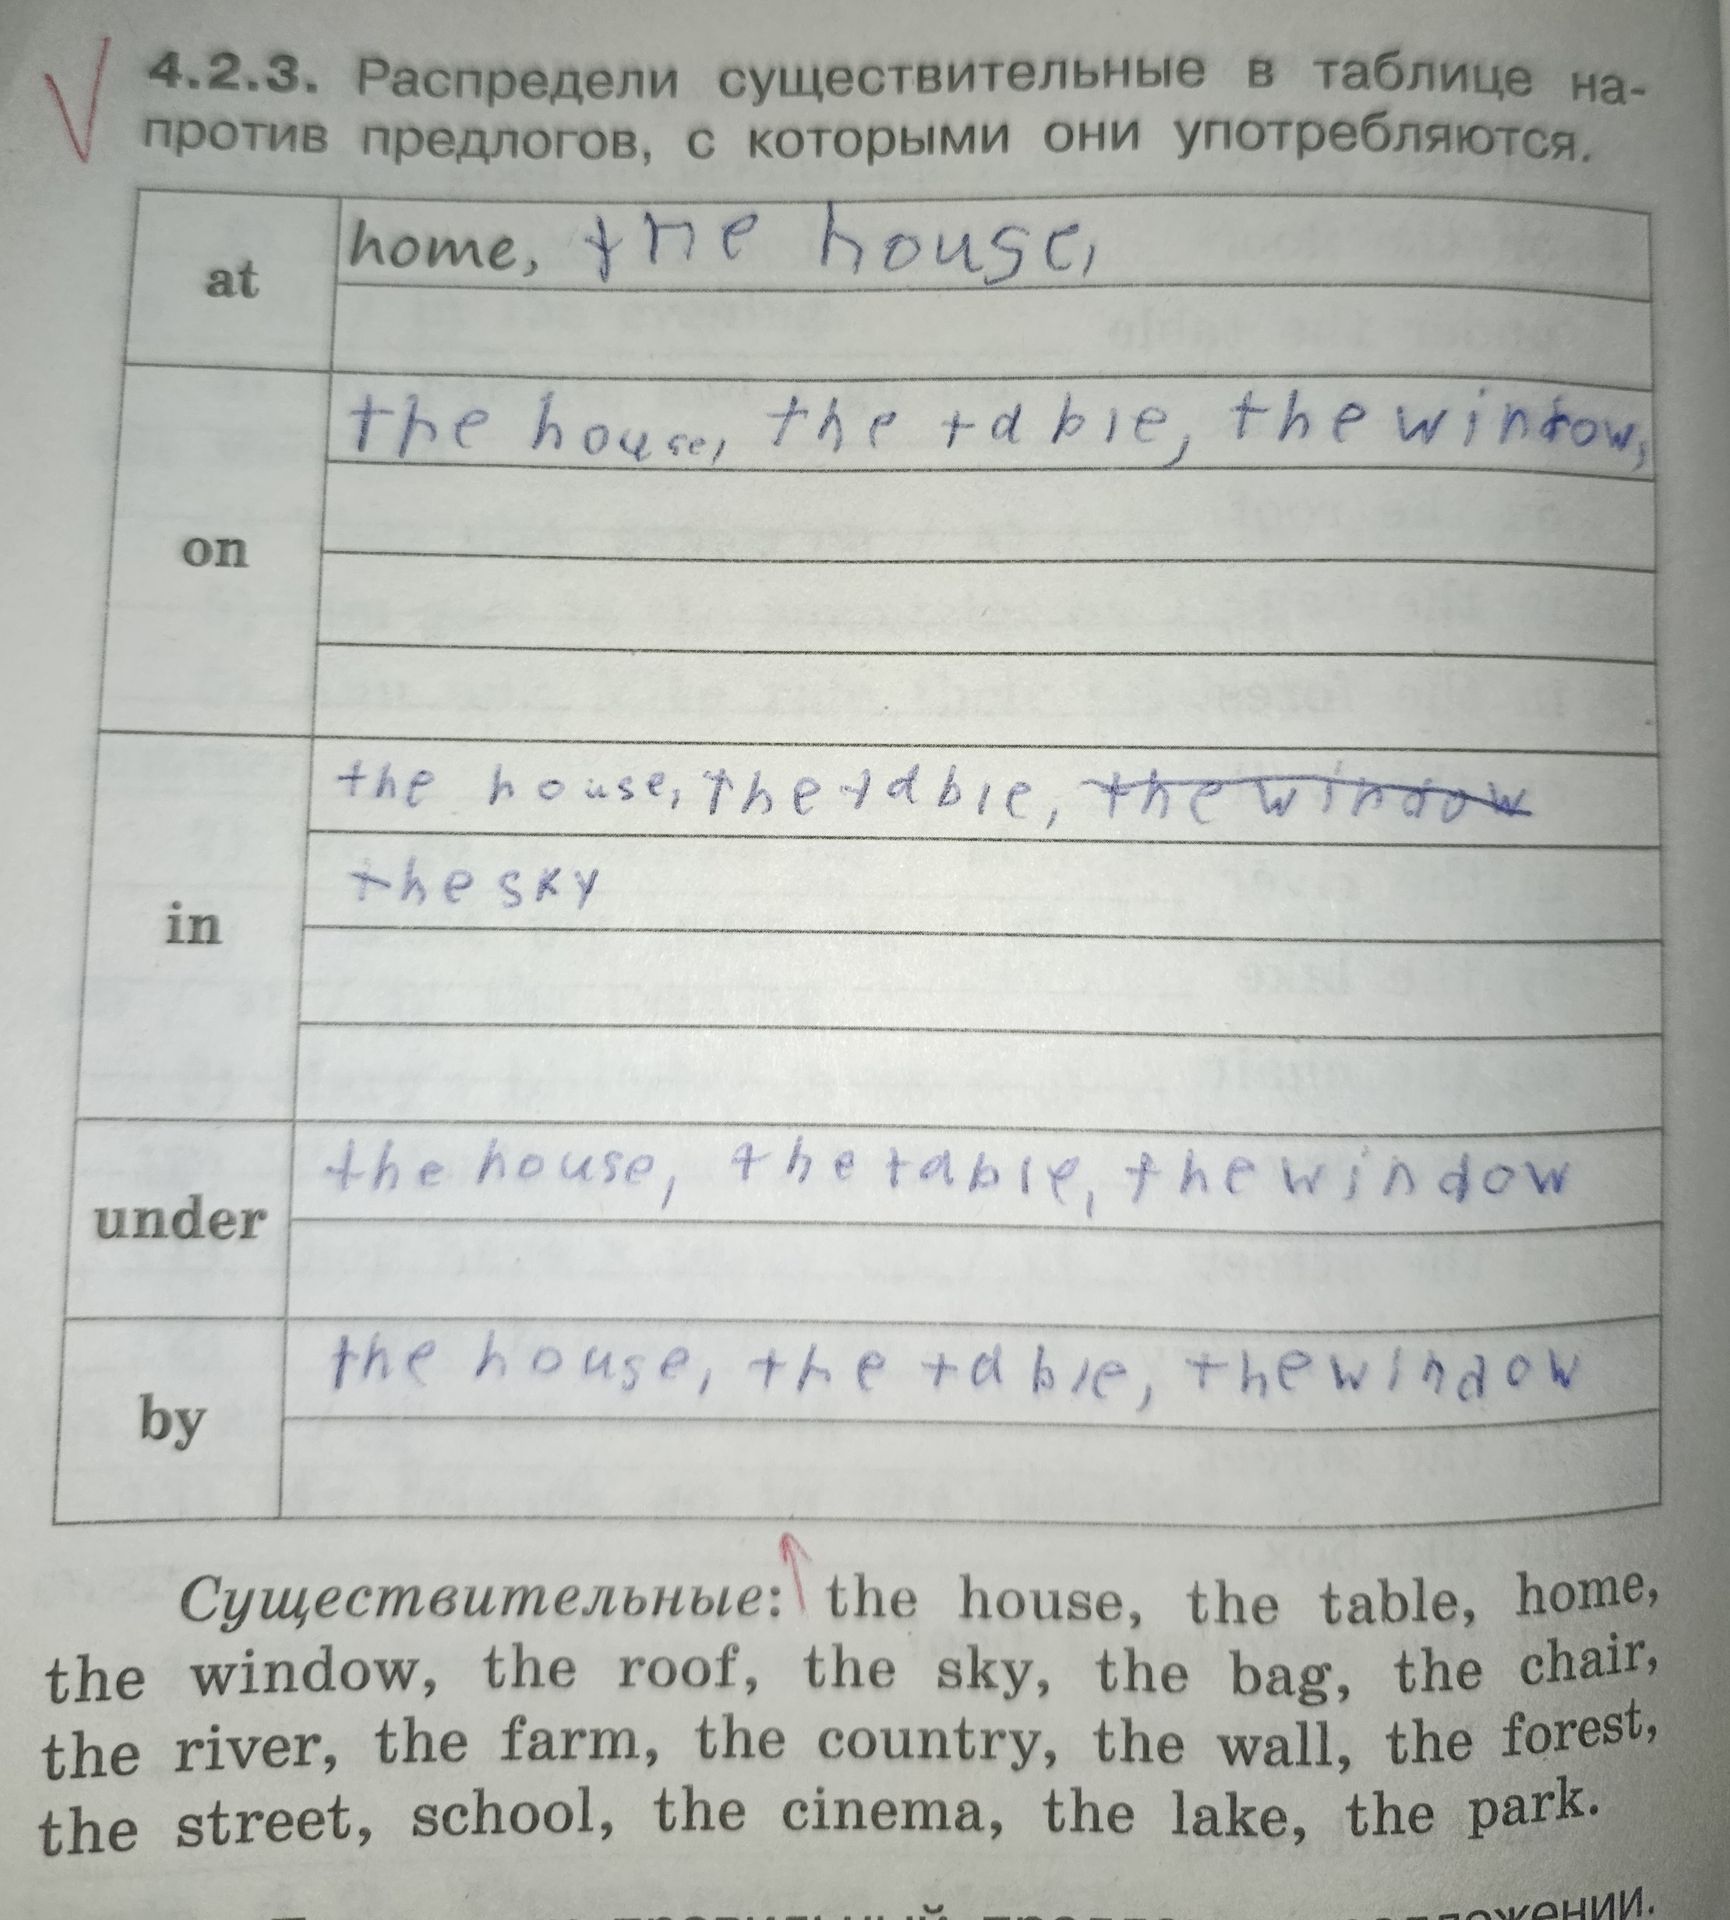 4.2.3. Распредели существительные в таблице на-
против предлогов, с которыми они употребляются.
at
home, the house,
on
the house, the table, the window,
in
the house, the table, the window
the sky
under
the house, the table, the window
by
the house, the table, the window
Существительные: the house, the table, home,
the window, the roof, the sky, the bag, the chair,
the river, the farm, the country, the wall, the forest,
the street, school, the cinema, the lake, the park.